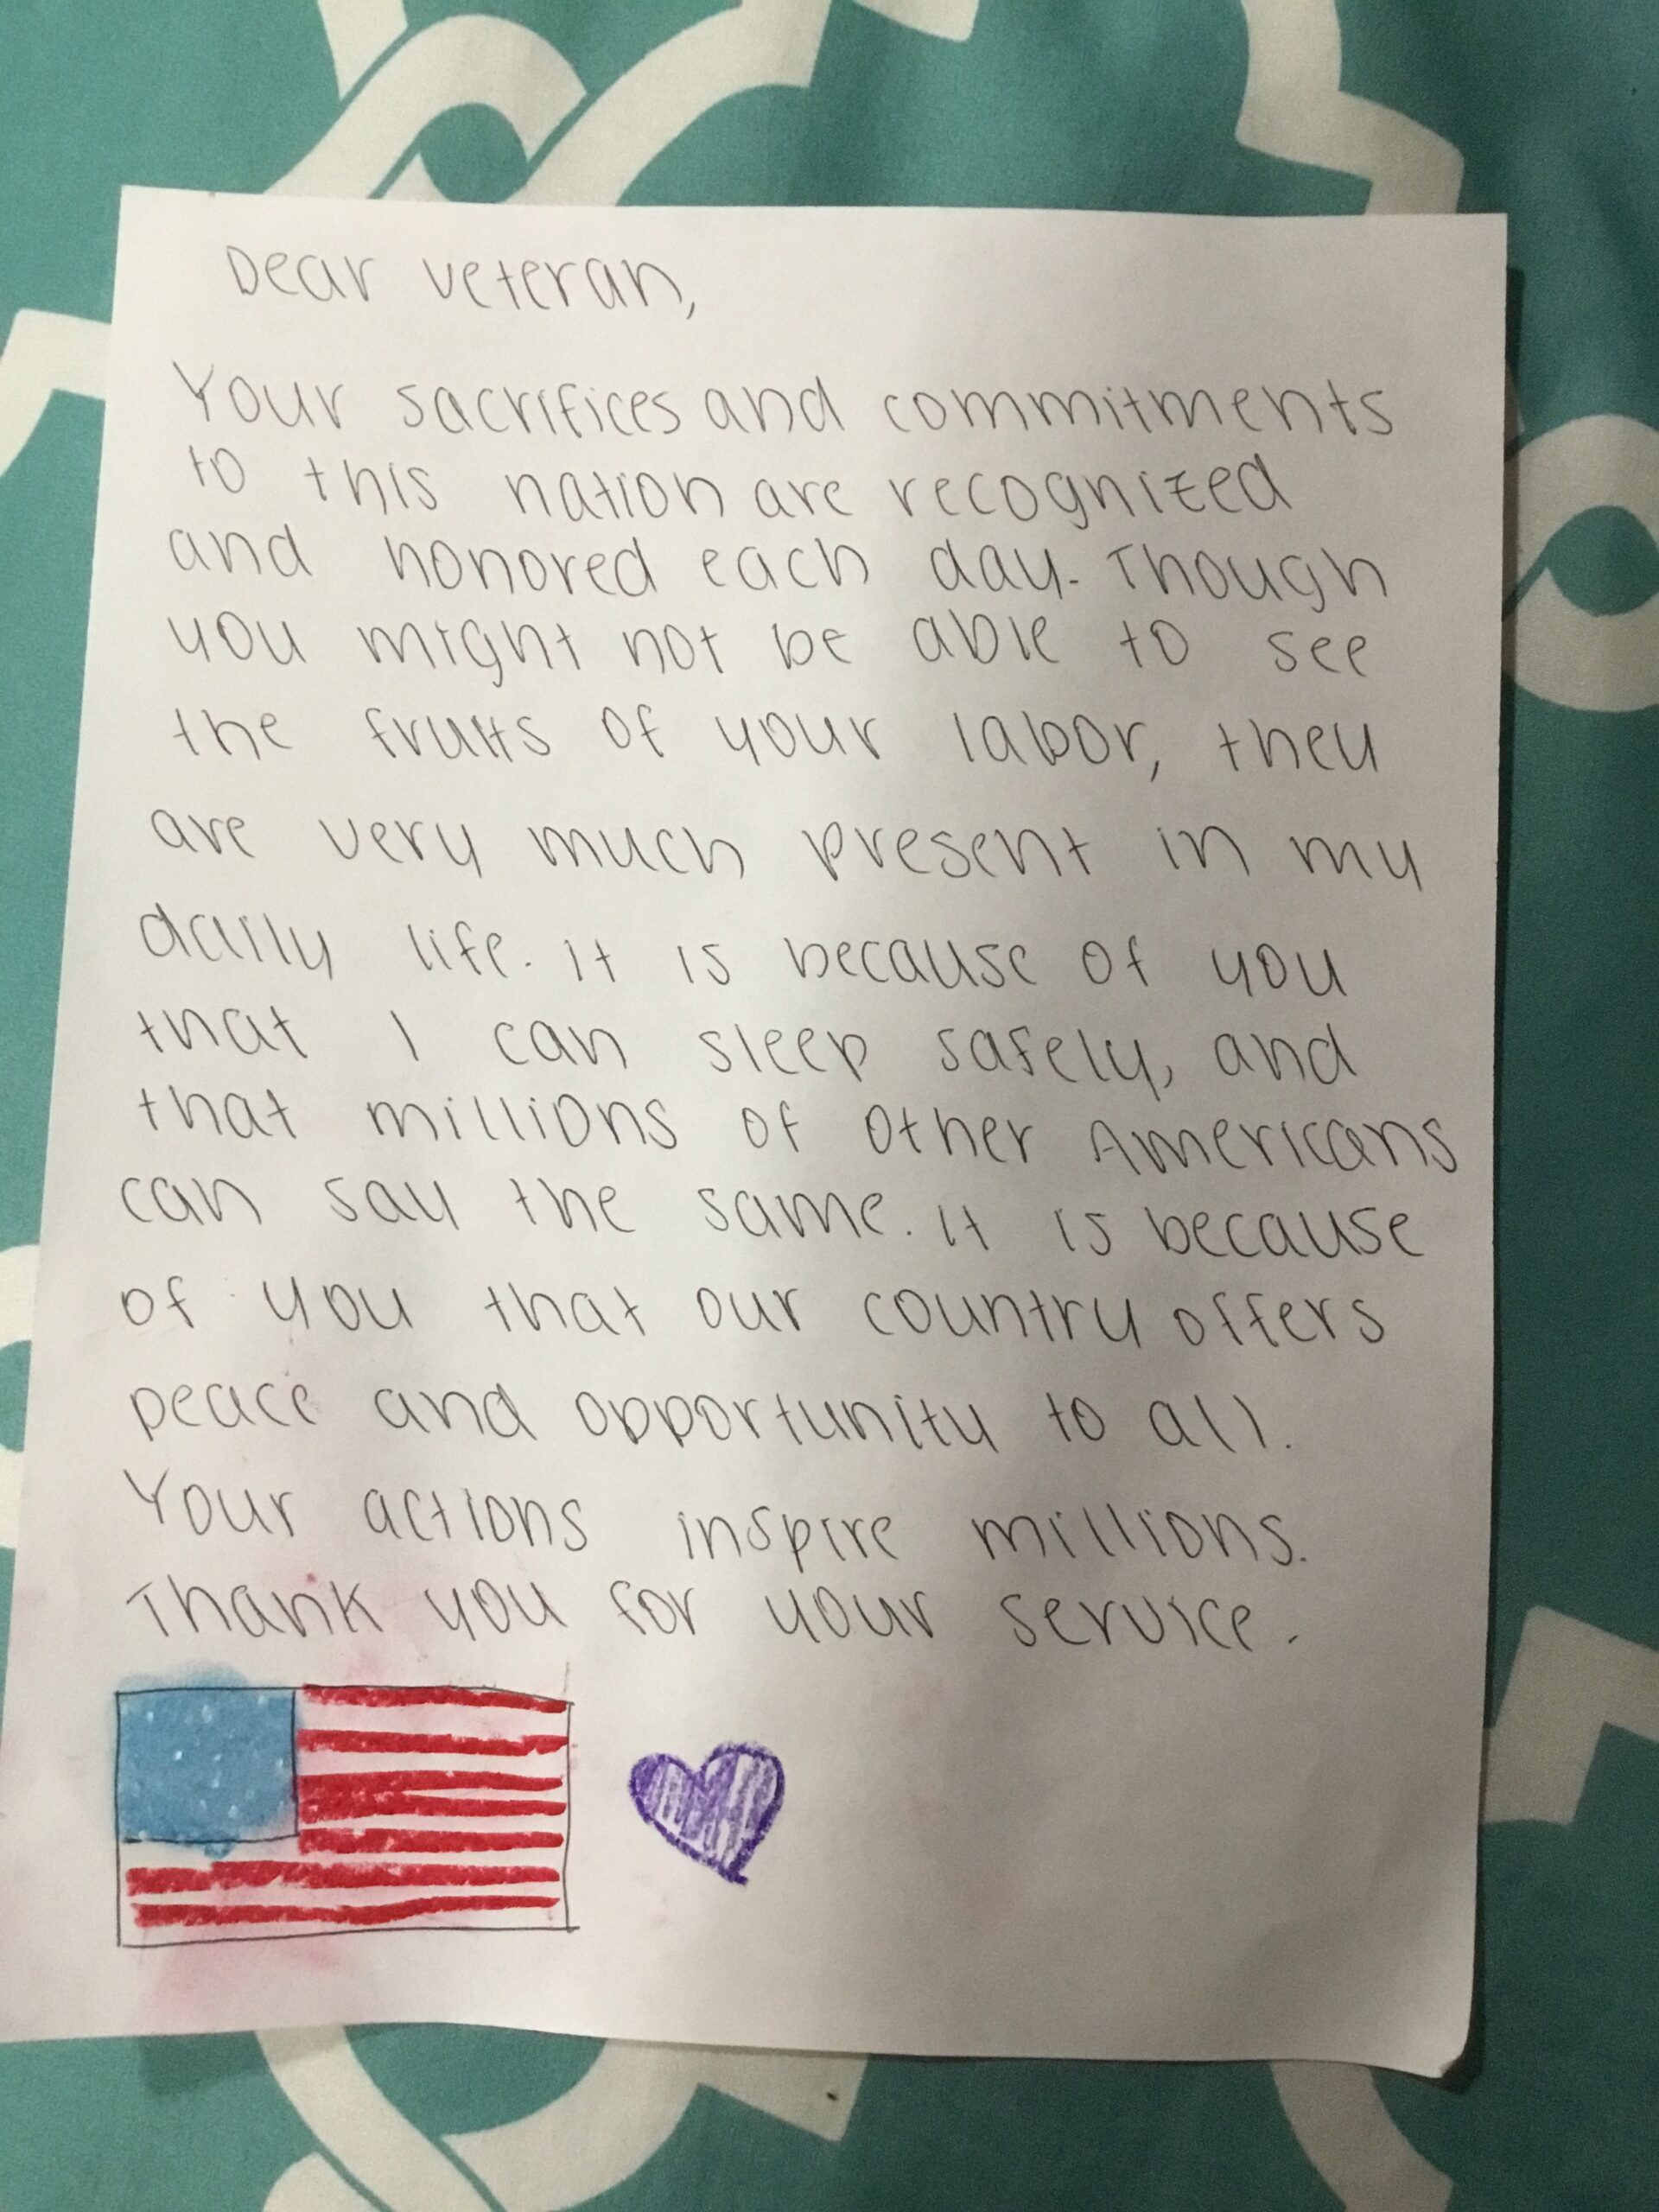 Dear veteran,
Your sacrifices and commitments
to this nation are recognized
and honored each day. Though
you might not be able to see
the fruits of your labor, they
are very much present in my
daily life. it is because of you
that I can sleep safely, and
that millions of other Americans
can say the same. it is because
of you that our country offers
peace and opportunity to all.
Your actions inspire millions.
Thank you for your service.